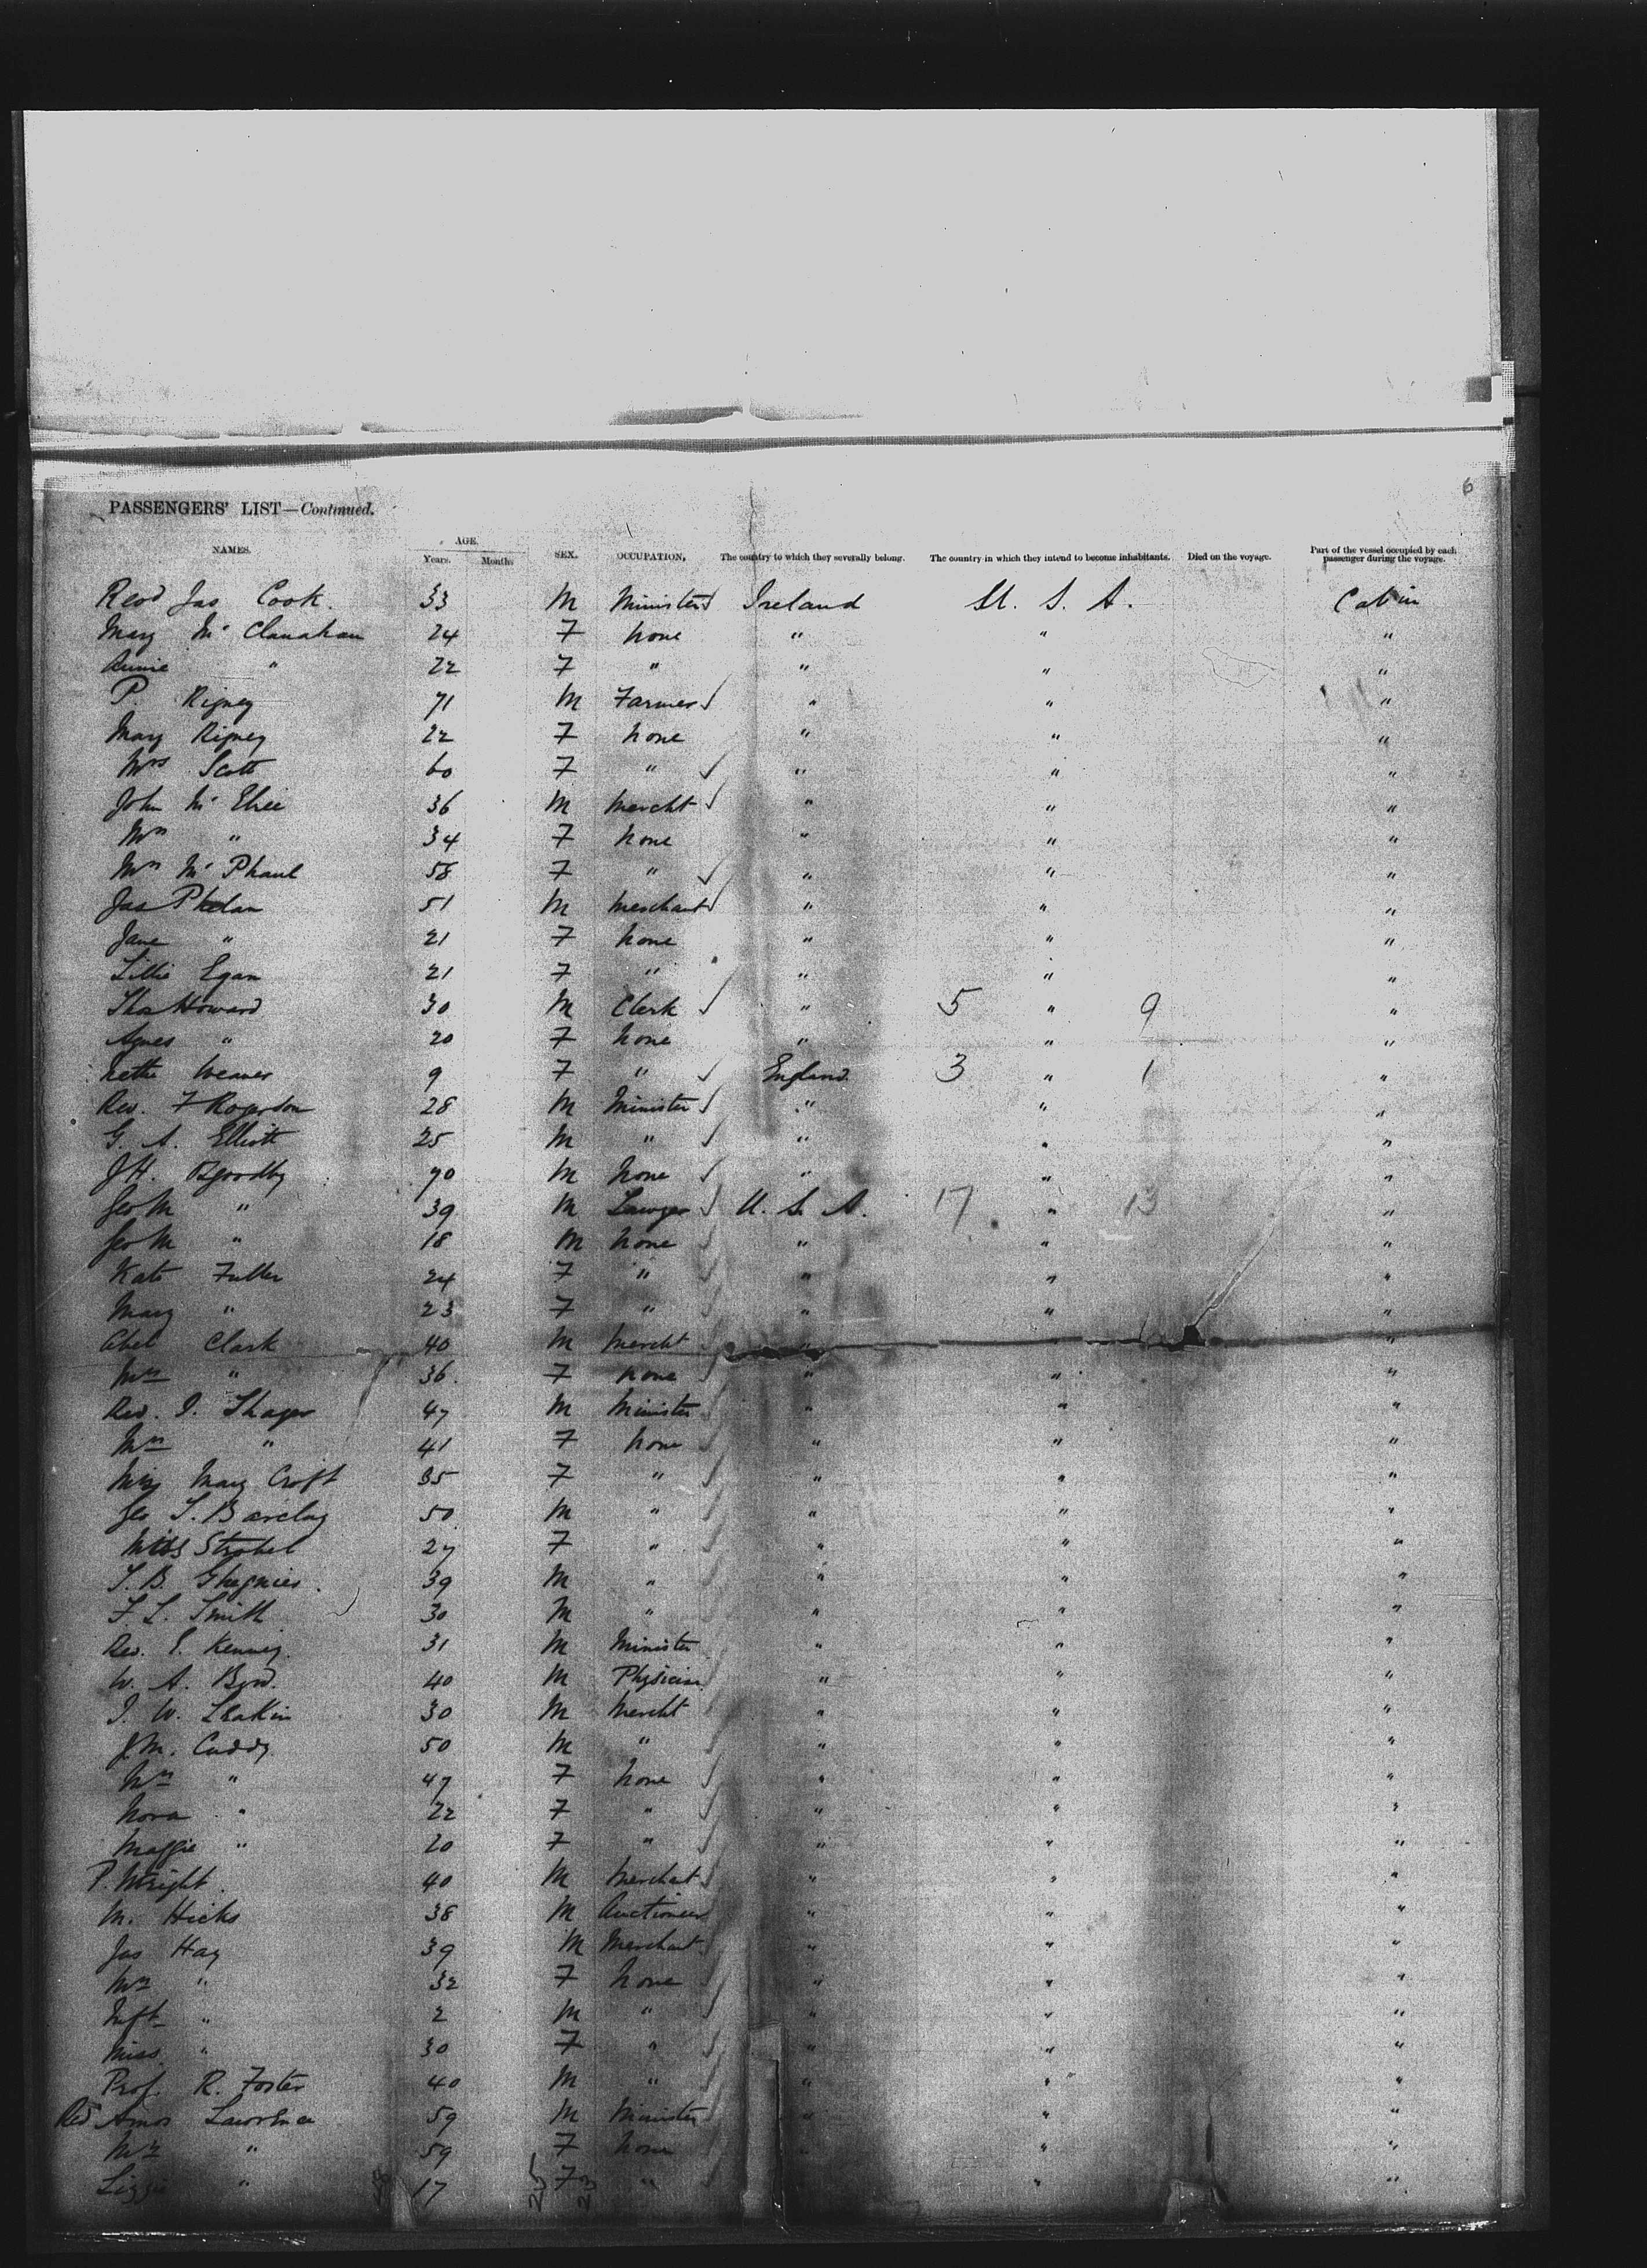 6
PASSENGERS' LIST—Continued.
NAMES. AGE. Years. Months SEX. OCCUPATION, The country to which they severally belong. The country in which they intend to become inhabitants. Died on the voyage. Part of the vessel occupied by each passenger during the voyage.
Revd Jas Cook. 33 M Minister Ireland U. S. A. Cabin
Mary Mc Clanahan 24 F None " " "
Annie " 22 F " " " "
P. Rigney 71 M Farmer " " "
Mary Rigney 22 F None " " "
Mrs Scott 60 F " " " "
John Mc Elree 36 M Mercht " " "
Mrs " 34 F None " " "
Mrs Mc Phaul 58 F " " " "
Jas Phelan 51 M Merchant " " "
Jane " 21 F None " " "
Lillie Egan 21 F " " " "
Thos Howard 30 M Clerk " 5 " 9 "
Agnes " 20 F None " " "
Nettie Weaver 9 F " England 3 " 1 "
Rev. F Rogerson 28 M Minister " " "
G. A. Elliott 25 M " " " "
J H. 70 M None " " "
Geo M " 39 M Lawyer U. S. A. 17 " 13 "
Geo M " 18 M None " " "
Kate Fuller 24 F " " " "
Mary " 23 F " " " "
Abel Clark 40 M Mercht " "
Mrs " 36. F None " " "
Rev. I. Thayer 47 M Minister " " "
Mrs " 41 F None " " "
Miss Mary Croft 35 F " " " "
Geo T. Barclay 50 M " " " "
Miss Strobel 27 F " " " "
T. B. 39 M " " " "
F. L. Smith 30 M " " " "
Rev. E. Kenney. 31 M Minister " " "
W. A. Byrd. 40 M Physician " " "
I. W. Leakin 30 M Mercht " " "
J. M. Cuddy 50 M " " " "
Mrs " 47 F None " " "
Nora " 22 F " " " "
Maggie " 20 F " " " "
P. Wright 40 M Merchant " " "
M. Hicks 38 M Auctioneer " " "
Jas Hay 39 M Merchant " " "
Mrs " 32 F None " " "
Inft " 2 M " " " "
Miss " 30 F " " " "
Prof. R. Foster 40 M " " " "
Rev Amos Lawrence 59 M Minister " " "
Mrs " 59 F None " " "
Lizzie " 17 F " " "
25 23